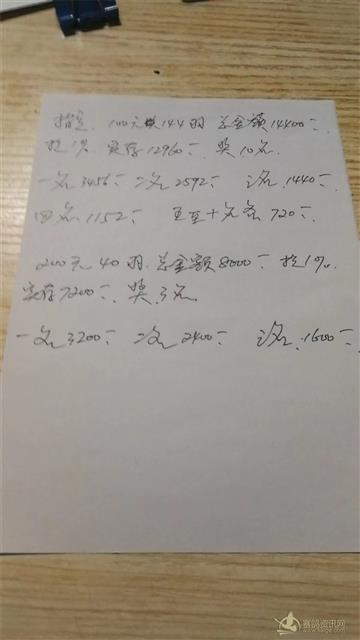 指定 100元 144羽 总金额14400元
实存12960元 奖10名
一名3456元 二名2592元 三名1440元
四名1152元 五至十名各720元
200元40羽 总金额8000元
实存7200元 奖3名
一名3200元 二名2400元 三名1600元
赛鸽资讯网